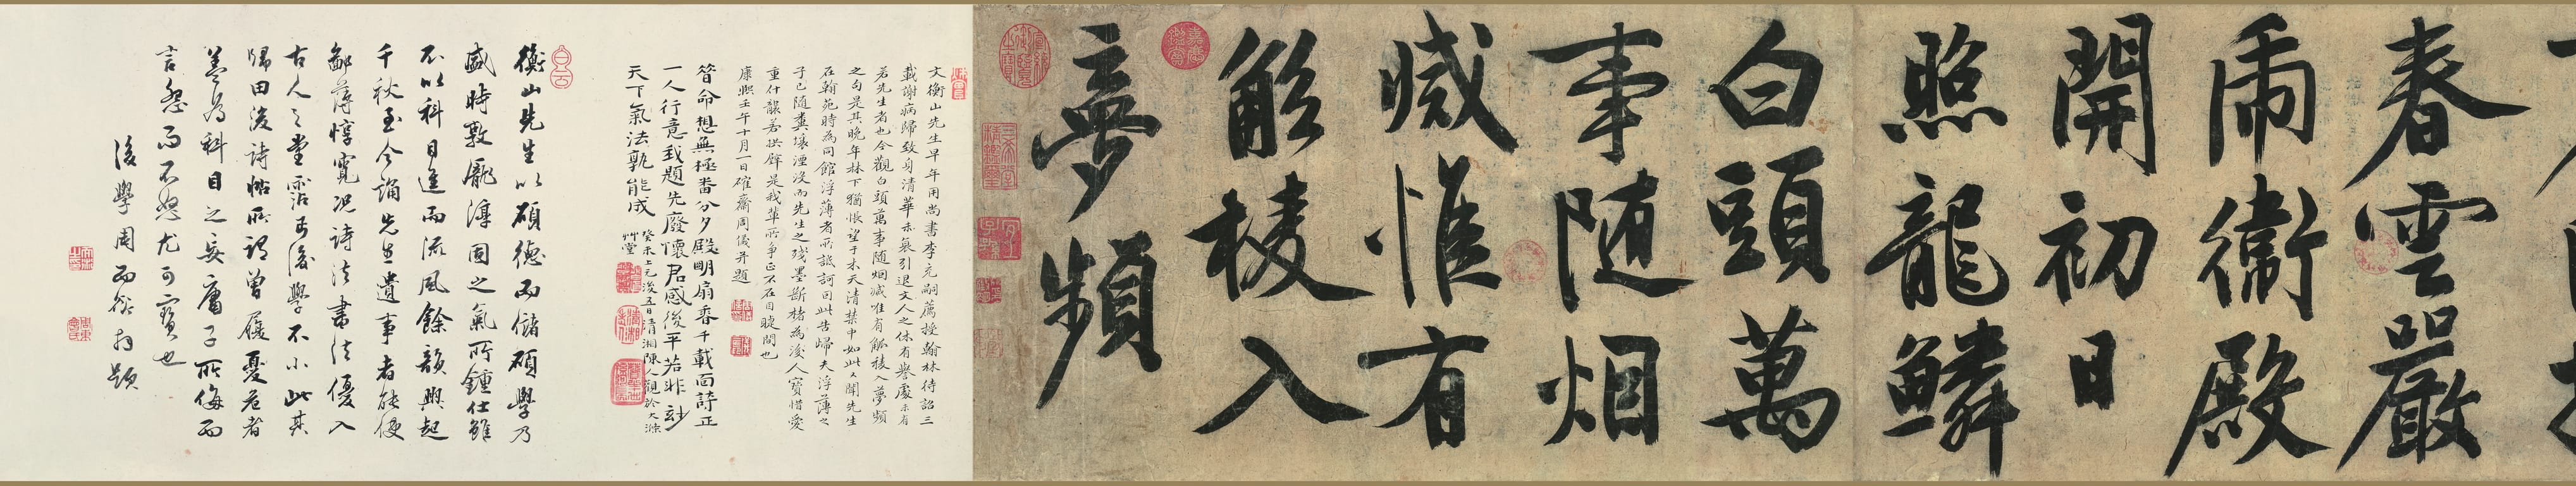 春雲嚴
兩衛殿
開初日
照龍鱗
白頭萬
事随烟
滅惟有
觚稜入
夢頻
文衡山先生早年用尚書李充嗣薦授翰林待詔三
載謝病歸致身清華未幾引退文人之休有譽處未有
若先生者也今觀白頭萬事随烟滅惟有觚稜入夢頻
之句是其晚年林下猶悵望于未天清禁中如此又聞先生
在翰苑時為同館浮薄者所詆訶因此告歸夫浮薄之
子已随糞壤湮没而先生之殘墨斷楮為後人寶惜愛
重什襲若拱璧是我輩所爭正不在目睫間也
康熙壬午十月一日確齋周儀并題
命想無極番分夕殿明扇香千載面詩正
一人行意我題先廢懷君感後平若非
天下氣法孰能成
癸未上元後五日清湘陳人觀於大滌
艸堂
衡山先生以碩德而儲碩學乃
盛時敦龐渾固之氣所鍾仕雖
不以科目進而流風餘韻興起
千秋至今誦先生遺事者能使
鄙薄惇寬況詩法書法優入
古人之堂霑丐後學不小此其
歸田後詩帖所謂曾履憂危者
蓋為科目之妄庸子所侮而
言怨而不怒尤可寶也
後學周而衍拜題